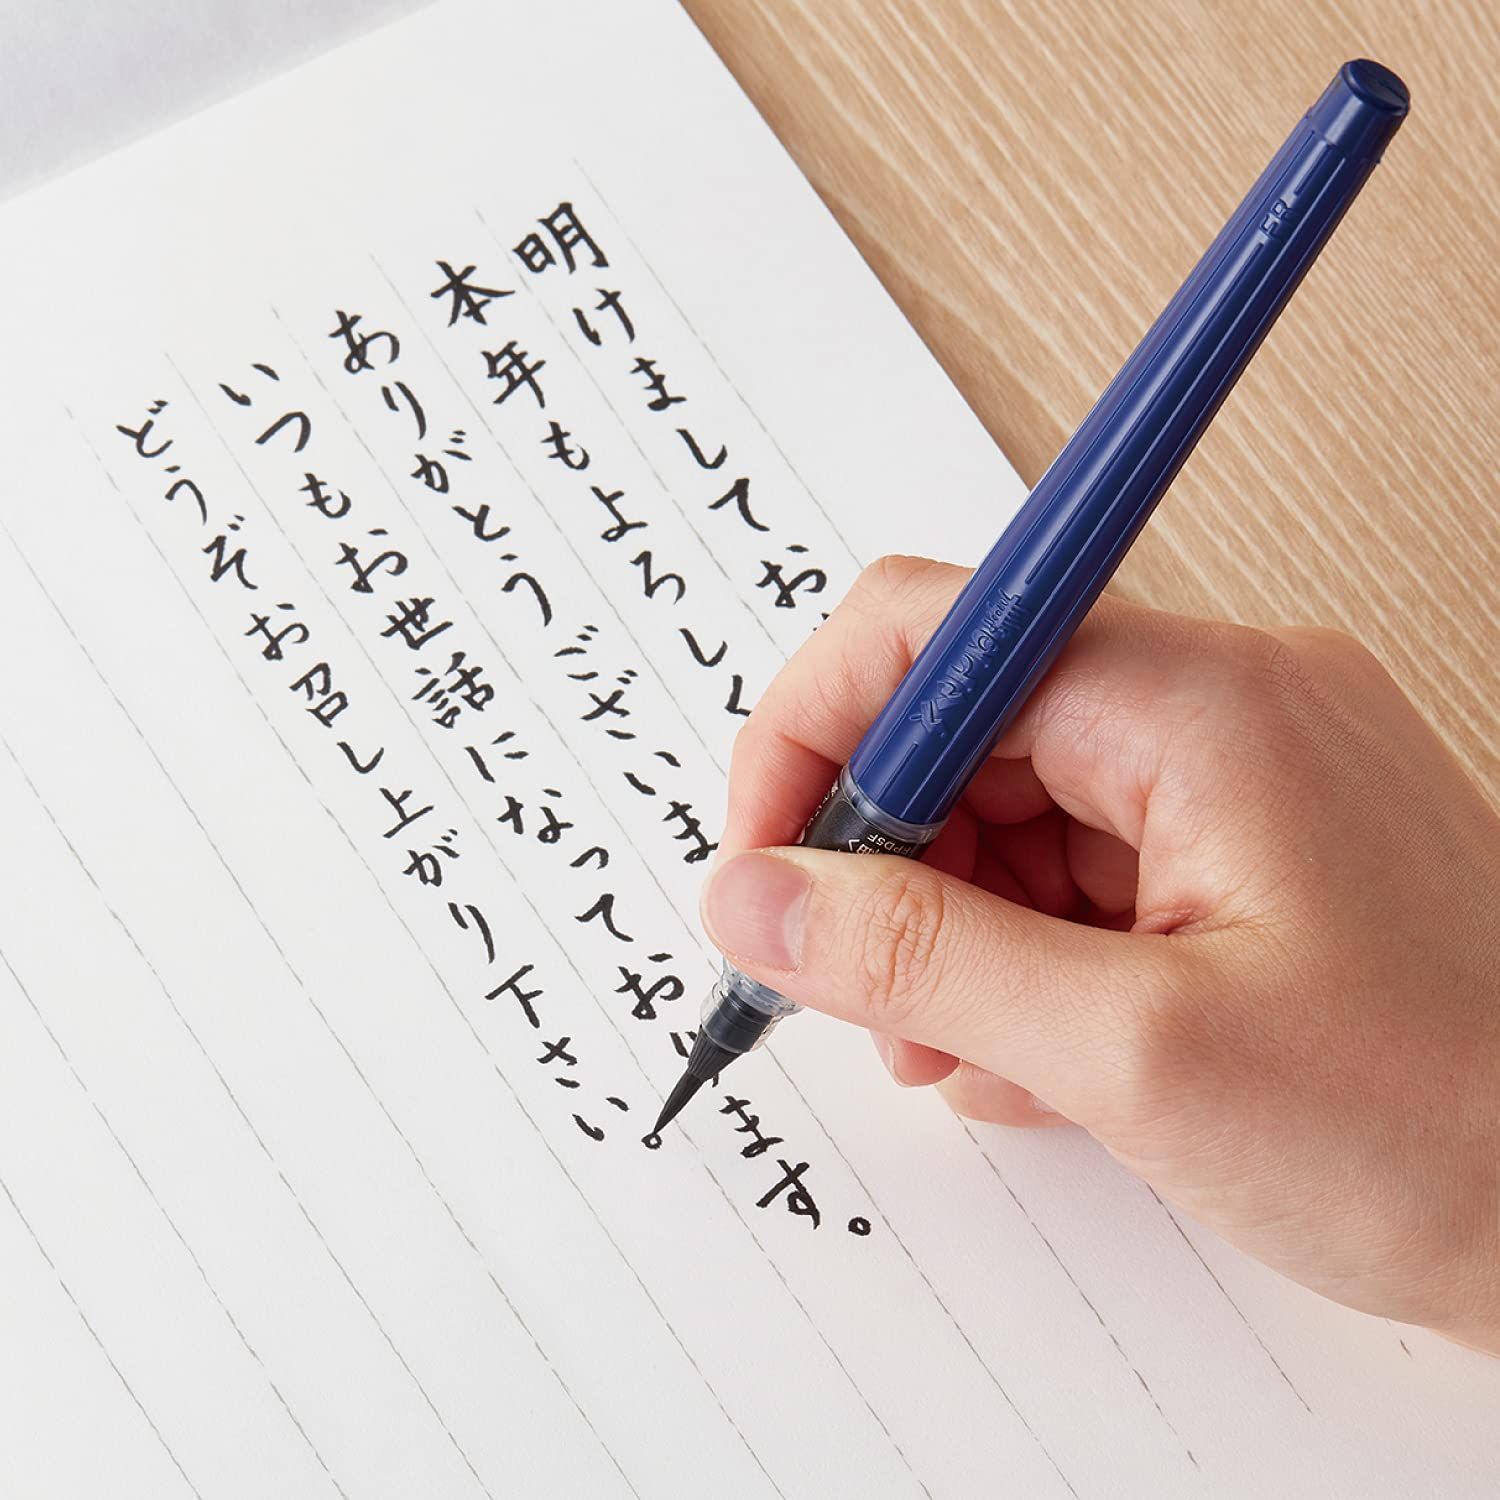 明けましてお
本年もよろしく
ありがとうございま
いつもお世話になっております。
どうぞお召し上がり下さい。
FR
FPD5F